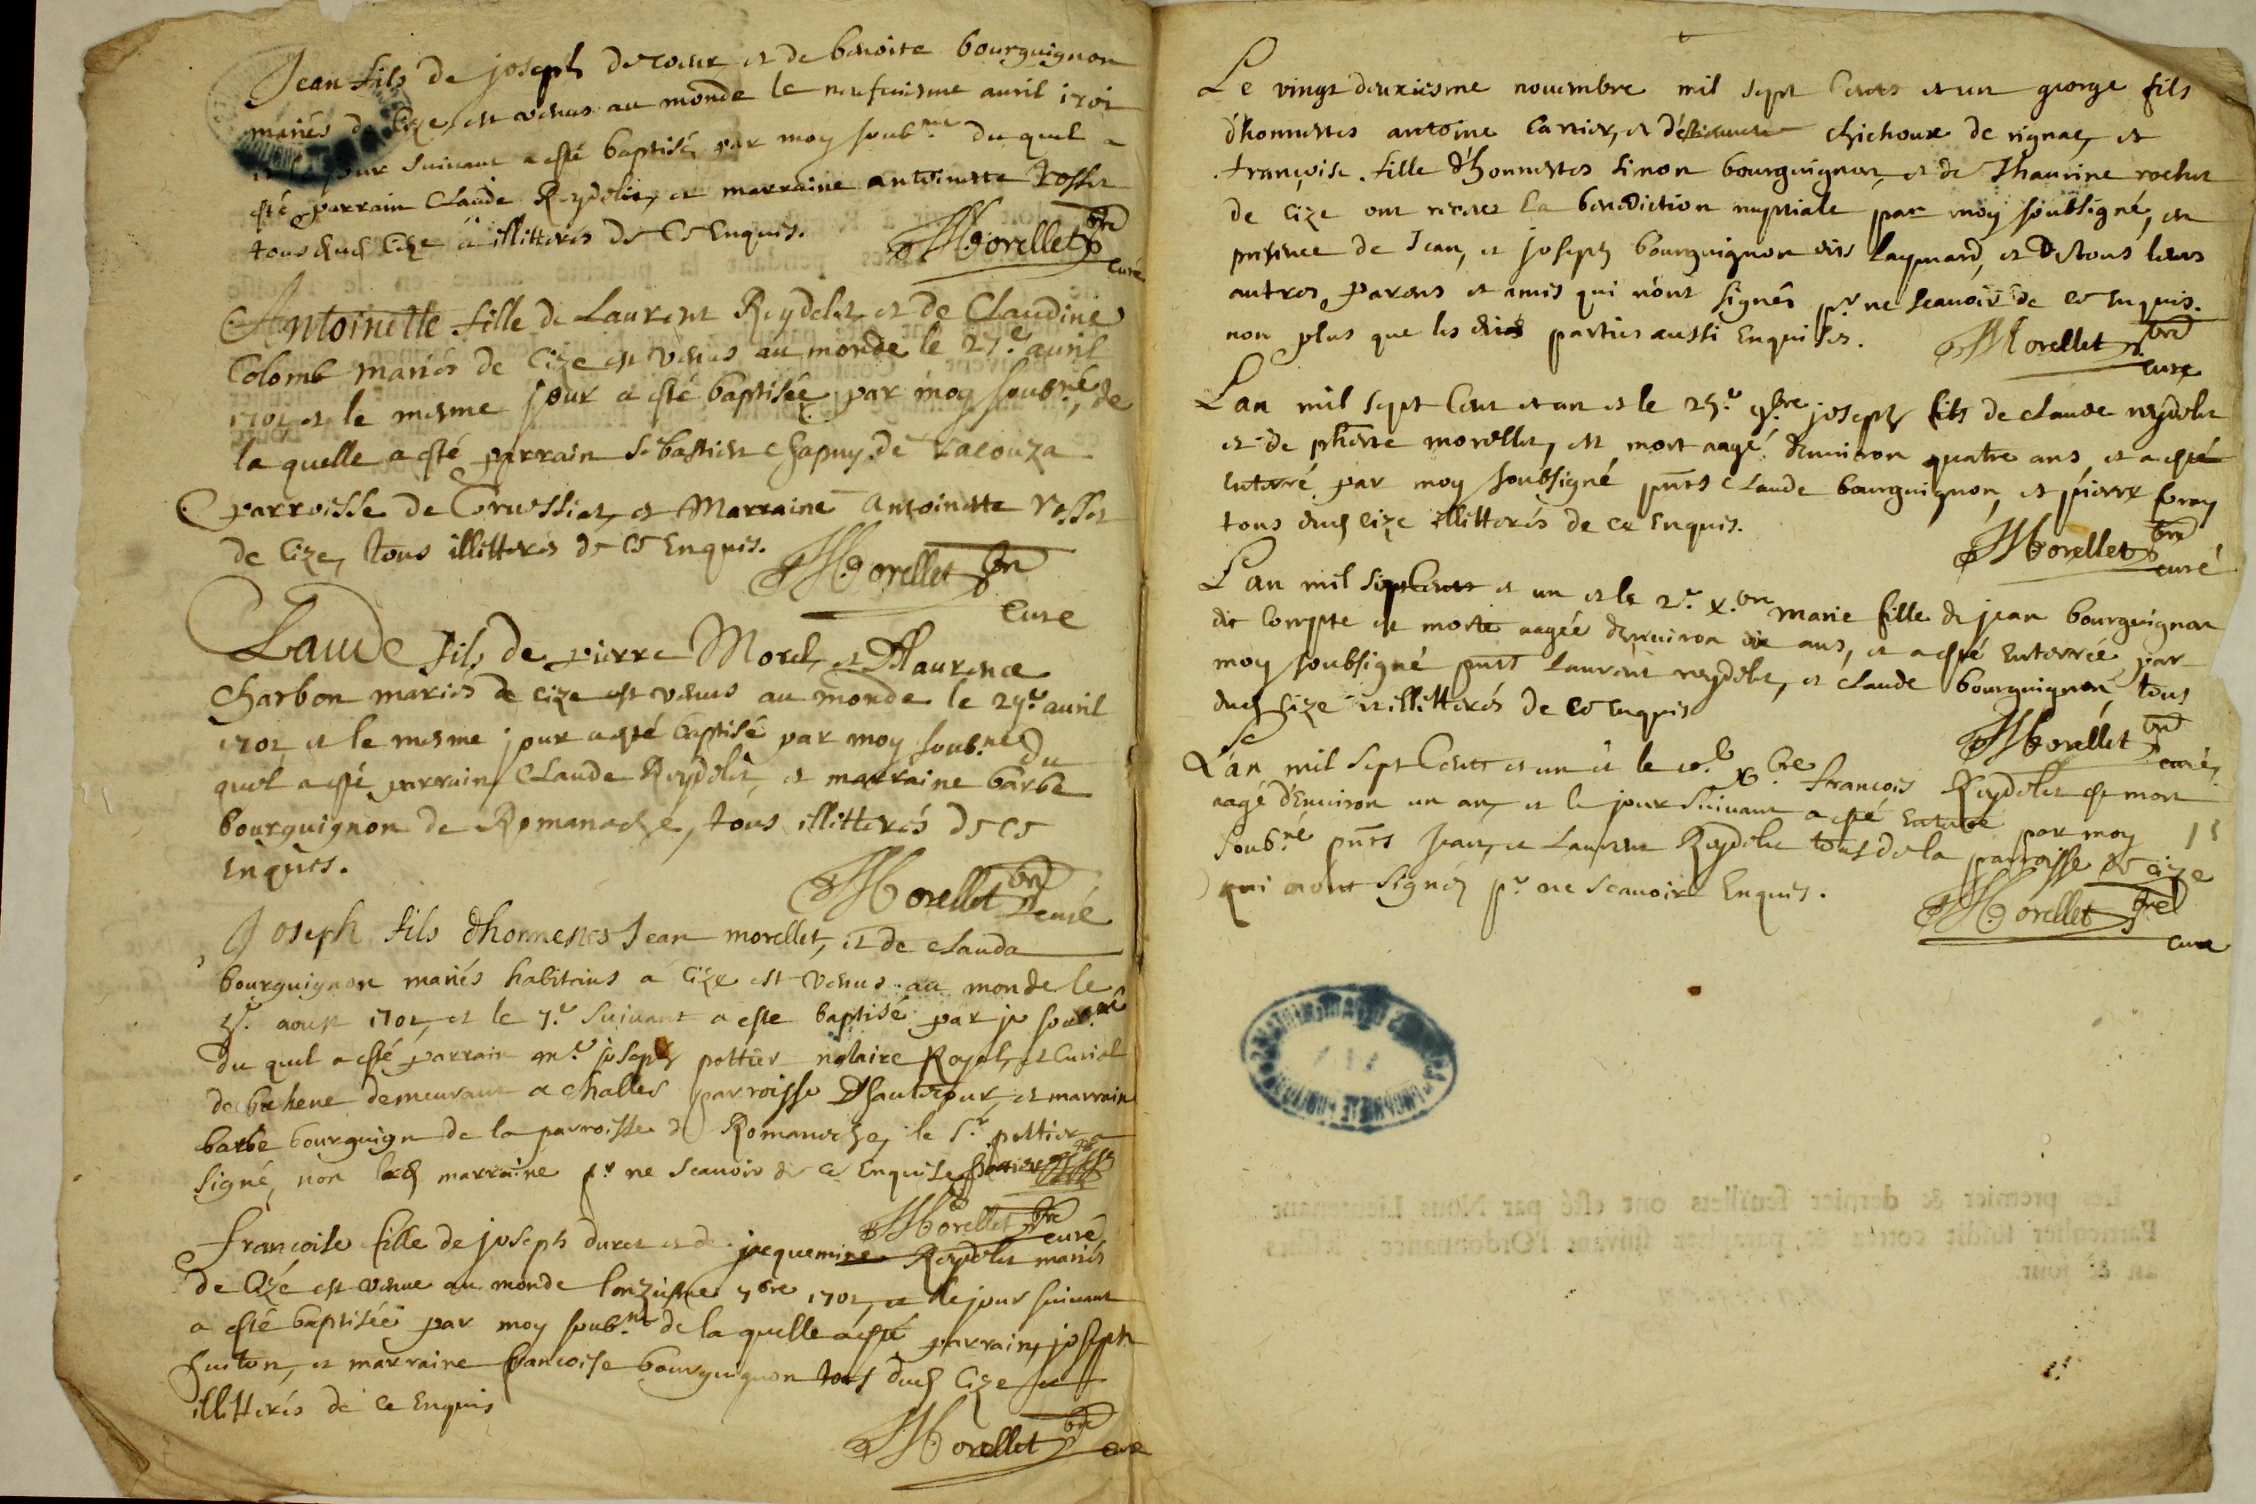 Jean fils de joseph et de benoite bourguignon
mariés de Cize, est venus au monde le neufuiesme auril 1701
jour suiuant a esté baptisé par moy soub.né du quel a
esté parrain Claude Reydellet, et marraine antoinette Rosset
tous dud Cize illitterés de ce Enquis.
Morellet pbre
curé
Antoinette fille de Laurent Reydelet et de Claudine
Colomb mariés de Cize est venus au monde le 27.e auril
1701 et le mesme jour a esté baptisée par moy soub.né, de
la quelle a esté parrain sebastien chapuy de Lacouza
parroisse de Trussiat, et Marraine Antoinette rosset
de Cize, tous illitterés de ce Enquis.
Morellet pbre
Curé
Claude fils de pierre Morel, et Laurence
Charbon mariés de cize est venus au monde le 29.e auril
1701 et le mesme jour a esté baptisé par moy soub.né du
quel a esté parrain Claude Reydelet, et marraine barbe
bourguignon de Romaneche, tous illitterés de ce
Enquis.
Morellet pbre
curé
Joseph fils dhonnestes Jean morellet, et de clauda
bourguignon mariés habitans a Cize est venus au monde le
5.e aoust 1701, et le 7.e suiuant a este baptisé par je soub.né
du quel a esté parrain m.e joseph pottier notaire Royal, et Curial
de bohene demeurant a challes parroisse dhautecour, et marraine
barbe bourguign de la parroisse de Romaneche, le s.r pottier a
signé, non lad marraine p.r ne scauoir de ce Enquise pottier
Morellet pbre
curé
francoise fille de joseph duret et de jacquemine Reydelet mariés
de Cize est venue au monde lonziesme 7bre 1701, et le jour suiuant
a esté baptisée par moy soub.né de la quelle a esté parrain joseph
suiton, et marraine francoise bourguignon tous dud Cize et
illitterés de ce Enquis
Morellet pbre curé
Le vingt deuxiesme nouembre mil sept Cents et un george fils
d'honnestes antoine Carrier, et d'estiennette chichoux de rignat, et
françoise fille d'honnestes simon bourguignon, et de Thaurine rochet
de Cize ont receu la benediction nuptiale par moy soubsigné, en
presence de Jean, et joseph bourguignon dis Laymard, et de tous leurs
autres parens et amis qui n'ont signés p.r ne scauoir de ce Enquis.
non plus que les dites parties aussi Enquises.
Morellet pbre
curé
L'an mil sept Cent et un et le 25.e 9bre joseph fils de claude reydelet
et de pierre morellet, est mort aagé d'enuiron quatre ans, et a esté
enterré par moy soubsigné pnts Claude bourguignon, et pierre
tous dud cize illitterés de ce Enquis.
Morellet pbre
curé
L'an mil sept Cents et un et le 2.e x.bre marie fille de jean bourguignon
dit Compte est morte aagée denuiron ans, et a esté Enterrée par
moy soubsigné pnts Laurent reydelet, et claude bourguignon tous
dud Cize et illitterés de ce Enquis
Morellet pbre
curé
L'an mil sept Cents et un et le 10.e xbre francois Reydelet est mort
aagé d'Enuiron un an, et le jour suiuant a esté Enterré par moy
soub.né pnts Jean, et Laurent Reydelet tous de la parroisse de cize
qui n'ont signés p.r ne scauoir Enquis.
Morellet pbre
curé
Les premier & dernier feuillets ont esté par Nous Lieutenant
Particulier susdit suivant l'Ordonnance
an & jour.